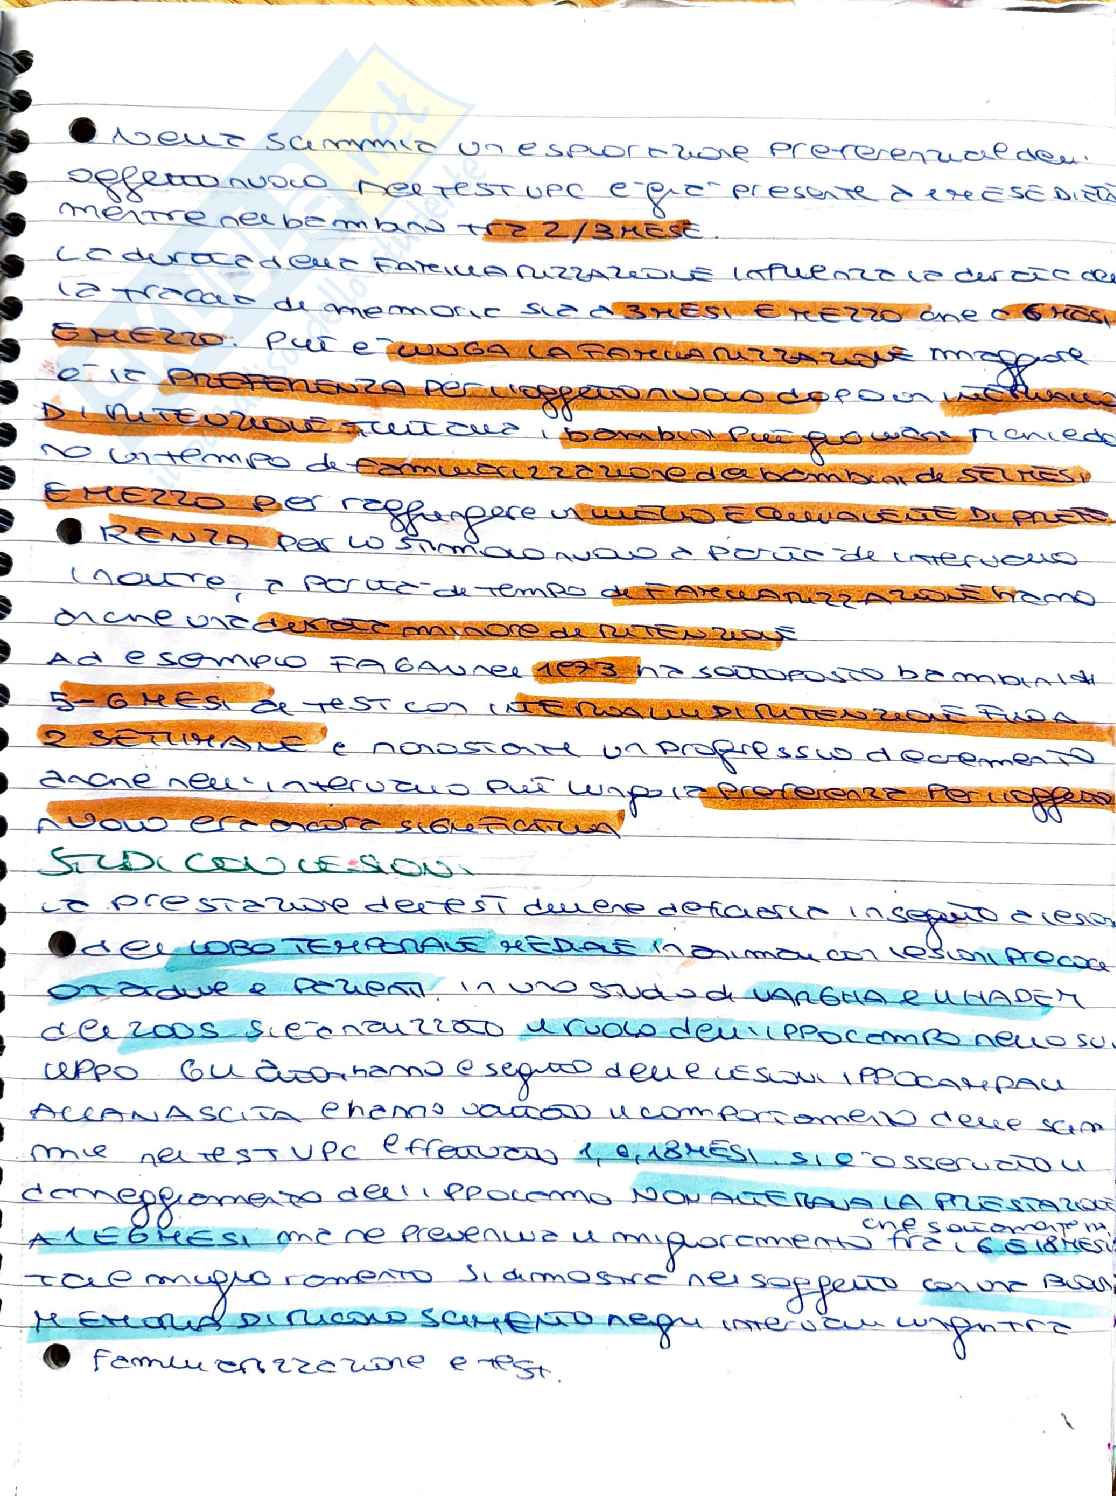 Nella scimmia un esplorazione preferenziale dell'
oggetto nuovo nel test VPC è già presente a 1 MESE DI ETÀ
mentre nel bambino tra 2/3 MESE.
La durata della FAMILIARIZZAZIONE influenza la durata del
la traccia di memoria sia a 3 MESI E MEZZO che a 6 MESI
E MEZZO. Più è LUNGA LA FAMILIARIZZAZIONE maggiore
è la PREFERENZA per l'oggetto nuovo dopo un INTERVALLO
DI RITENZIONE tuttavia i bambini più giovani richiedo
no un tempo di familiarizzazione dei bambini di SEI MESI
E MEZZO per raggiungere un LIVELLO EQUIVALENTE DI PREFE
RENZA per lo stimolo nuovo a parità di intervallo
inoltre, a parità di tempo di FAMILIARIZZAZIONE hanno
anche una durata minore di RITENZIONE
Ad esempio FAGAN nel 1973 ha sottoposto bambini di
5-6 MESI di test con INTERVALLI DI RITENZIONE FINO A
2 SETTIMANE e nonostante un progressivo decremento
anche nell'intervallo più lungo la preferenza per l'oggetto
nuovo era ancora SIGNIFICATIVA
STUDI CON LESIONI
La prestazione dei test diviene deficitaria in seguito a lesioni
del LOBO TEMPORALE MEDIALE in animali con lesioni precoci
o tardive e pazienti. In uno studio di VARGHA e
del 2005 si è analizzato il ruolo dell'IPPOCAMPO nello svi
LUPPO Gli autori hanno eseguito delle LESIONI IPPOCAMPALI
ALLA NASCITA e hanno valutato il comportamento delle scim
mie nel test VPC effettuato 1, 6, 18 MESI. Si è osservato il
danneggiamento dell'ippocampo NON ALTERAVA LA PRESTAZIONE
A 1 E 6 MESI ma ne preveniva il miglioramento fra i 6 E 18 MESI
che solitamente ha
tale miglioramento si dimostra nel soggetto con una BUONA
MEMORIA DI RICONOSCIMENTO negli intervalli lunghi tra
familiarizzazione e test.